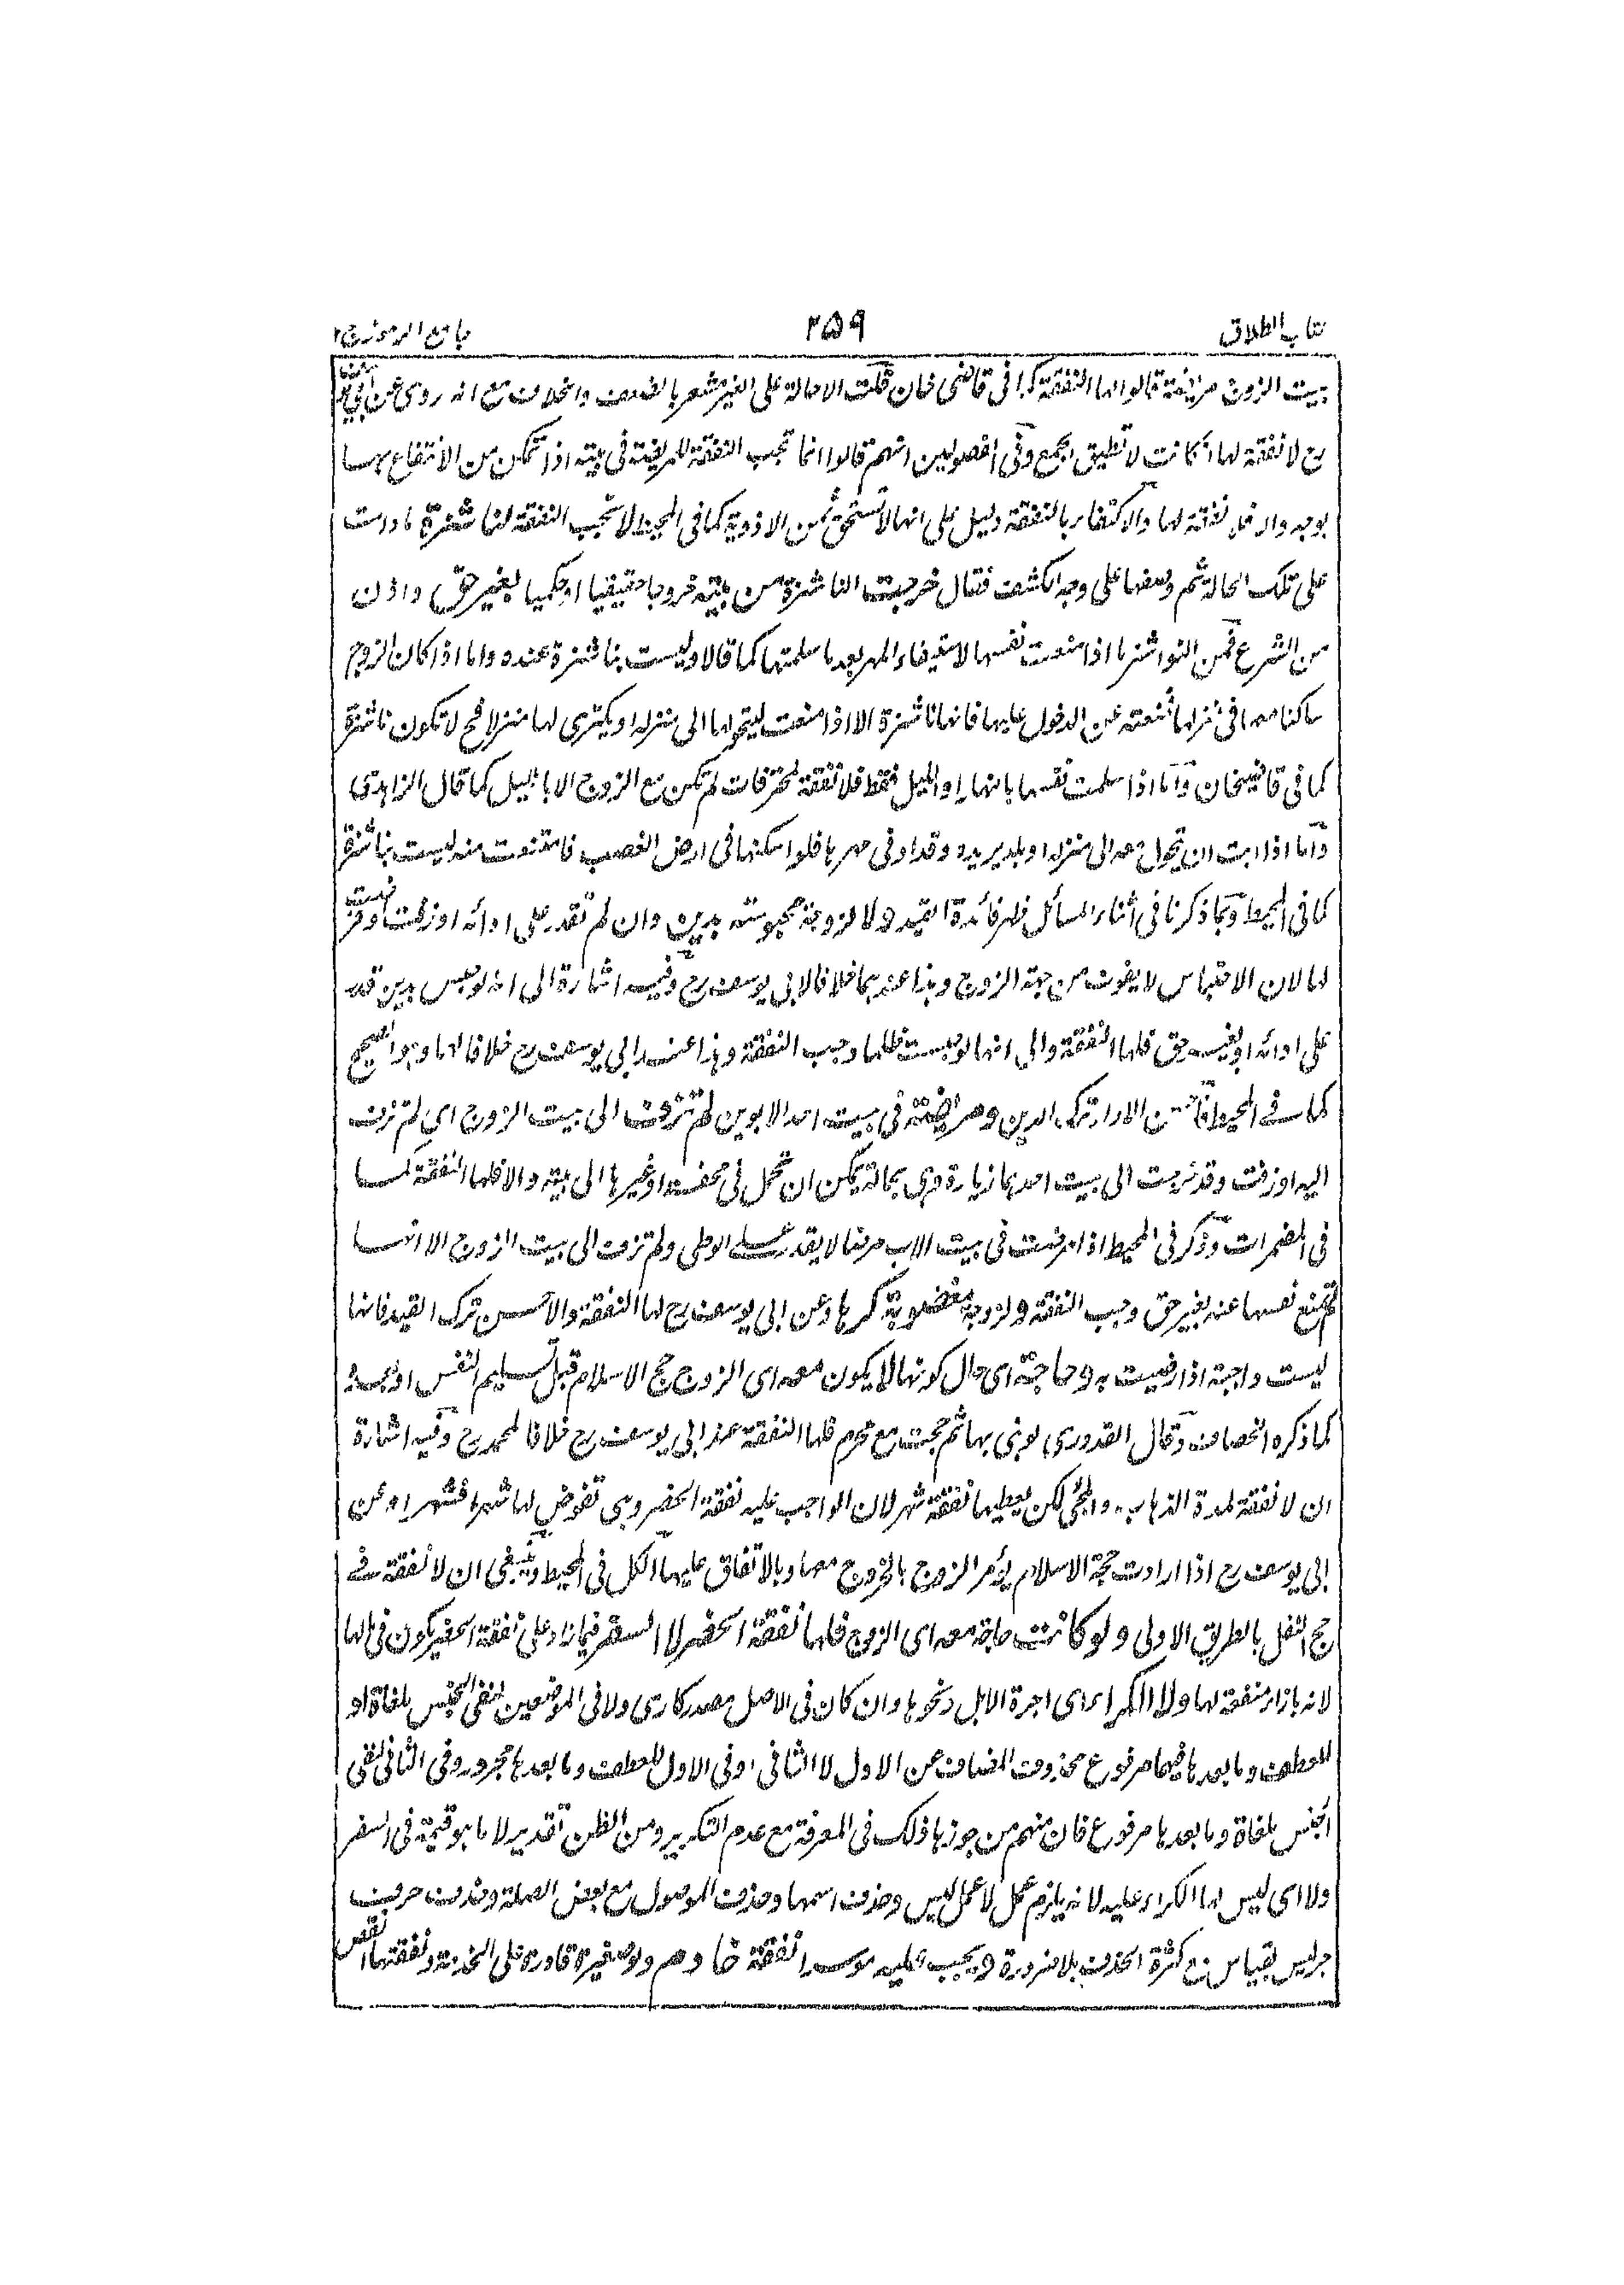 كتاب الطلاق ٢٥٩ جامع الرموز ج ٢
بيت الزوج مريضة قالوا لها النفقة كما فى قاضى خان قلت الاحالة على الغير مشعر بالضعف والخلاف مع انه روى عن ابى يوسف
رح لا نفقة لها اذا كانت لا تطيق الجمع وفى الفصولين انهم قالوا انما تجب النفقة للمريضة فى بيته اذا تمكن من الانتفاع بها
بوجه والا فلا نفقة لها والاكتفاء بالنفقة دليل على انها لا تستحق ثمن الادوية كما فى المحيط لا تجب النفقة لناشزة مادامت
على تلك الحالة ثم وصفها على وجه الكشف فقال خرجت الناشزة من بيته خروجا حقيقيا او حكميا بغير حق واذن
من الشرع فمن النواشز ما اذا منعت نفسها لاستيفاء المهر بعد ما سلمتها كما قالا وليست بناشزة عنده واما اذا كان الزوج
ساكنا معها فى منزلها فمنعته عن الدخول عليها فانها ناشزة الا اذا منعت ليتحولها الى منزله او يكترى لها منزلا فح لا تكون ناشزة
كما فى قاضيخان واما اذا سلمت نفسها بالنهار او الليل فقط فلا نفقة لمحترفات لم تكن مع الزوج الا بالليل كما قال الزاهدى
واما اذا ابت ان تحول معه الى منزله او بلد يريده وقد اوفى مهرها فلو اسكنها فى ارض الغصب فامتنعت منه ليست بناشزة
كما فى المحيط وبما ذكرنا فى اثناء المسائل ظهر فائدة القيد ولا لزوجة محبوسة بدين وان لم تقدر على ادائه او زفت او مرضت
لها لان الاحتباس لا يفوت من جهة الزوج وهذا عندهما خلافا لابى يوسف رح وفيه اشارة الى انه لو حبس بدين قدر
على ادائه او بغير حق فلها النفقة والى انها لو حبست ظلما وجب النفقة وهذا عند ابى يوسف رح خلافا لهما وهو الصحيح
كما فى المحيط الاداء ترك الدين ومريضة فى بيت احد الابوين لم تزف الى بيت الزوج اى لم تزف
اليه او زفت وقد مرضت الى بيت احدهما زيارة وهى بحالة يمكن ان تحمل فى محفة او غيرها الى بيته والا فلها النفقة كما
فى المضمرات وذكر فى المحيط اذا مرضت فى بيت الاب مرضا لا يقدر على الوطى ولم تزف الى بيت الزوج الا انها
لم تمنع نفسها عنه بغير حق وجب النفقة ولزوجة مغصوبة كرها وعن ابى يوسف رح لها النفقة والاحسن ترك القيد فانها
ليست واجبة اذا رضيت به وحاجة اى حال كونها لا يكون معه اى الزوج حج الاسلام قبل تسليم النفس او بعده
كما ذكره الخصاف وقال القدورى لو بنى بها ثم حجت مع محرم فلها النفقة عند ابى يوسف رح خلافا لمحمد رح وفيه اشارة
ان لا نفقة لمدة الذهاب والمجئ لكن يعطيها نفقة شهر لان الواجب عليه نفقة الحضر وهى تفوض لها شهرا فشهرا وعن
ابى يوسف رح اذا ارادت حجة الاسلام يؤمر الزوج بالخروج معها وبالاتفاق عليها الكل فى المحيط وينبغى ان لا نفقة فى
حج النفل بالطريق الاولى ولو كانت حاجة معه اى الزوج فلها نفقة الحضر لا السفر فما زاد على نفقة الحضر يكون فى مالها
لانه بازاء منفعة لها ولا الكراء اى اجرة الابل ونحوها وان كان فى الاصل مصدر كارى ولا فى الموضعين لنفى الجنس ملغاة او
للعطف وما بعدها فيهما مرفوع محذوف المضاف عن الاول لا الثانى او فى الاول للعطف وما بعدها مجرور وفى الثانى لنفى
الجنس ملغاة وما بعدها مرفوع فان منهم من جوزها ذلك فى المعرفة مع عدم التكرير ومن الظن تقدير لا ما هو قيمة فى السفر
ولا اى ليس لها الكراء عليه لانه يلزم عمل لا عمل ليس وحذف اسمها وحذف الموصول مع بعض الصلة وحذف حرف
جر ليس بقياس مع كثرة الحذف بلا ضرورة ويجب عليه موسرا نفقة خادم ولو صغيرة قادرة على الخدمة ونفقتها انقص